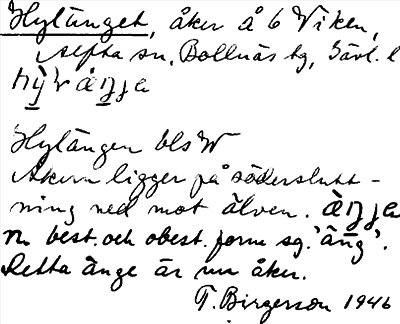 Hylänget, åker å 6 Viken,
Alfta sn, Bollnäs tg, Gävl. l
Hylängen bls W
Åkern ligger på söderslutt-
ning ned mot älven. äŋja
n. best. och obest. form sg. 'äng'.
Detta änge är nu åker.
T. Birgerson 1946